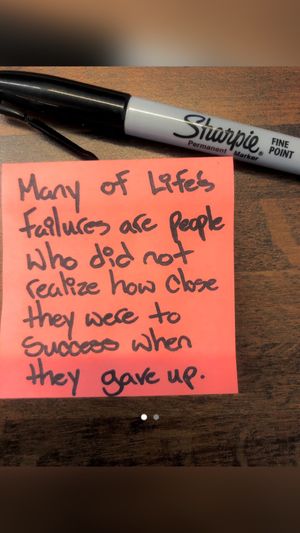 Sharpie®
Permanent Marker
FINE
POINT
Many of Life's
failures are people
who did not
realize how close
they were to
success when
they gave up.